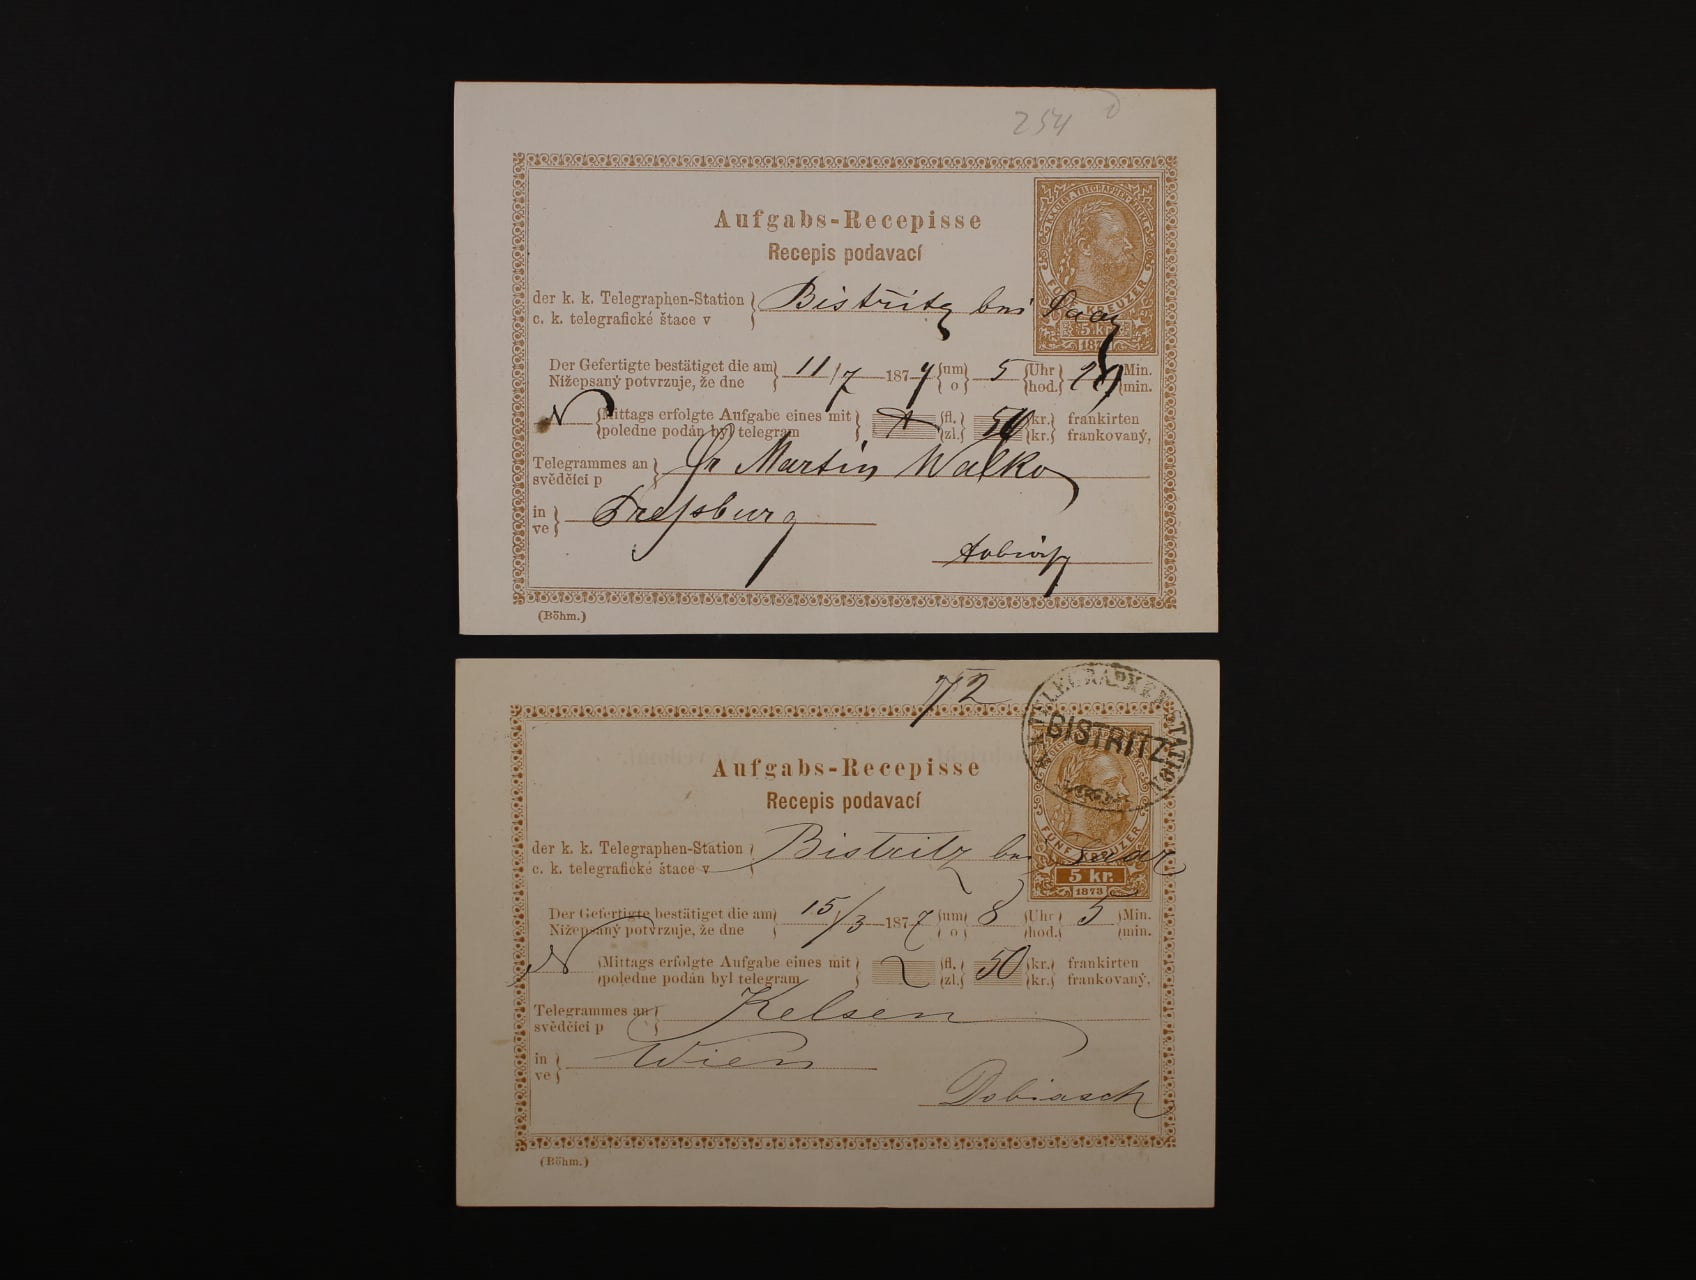 254
Aufgabs-Recepisse
Recepis podavací
K.K. OEST. TELEGRAPHEN-MARKE
FÜNF KREUZER
5 kr.
1873
der k. k. Telegraphen-Station } Bistritz bei Saar
c. k. telegrafické štace v
Der Gefertigte bestätiget die am } 11/7 187 {um 5 {Uhr {Min.
Nižepsaný potvrzuje, že dne {o {hod. {min.
N {Mittags erfolgte Aufgabe eines mit } {fl. 50 {kr. frankirten
{poledne podán byl telegram {zl. {kr. frankovaný,
Telegrammes an } Martin Walko
svědčící p
in } Pressburg
ve
(Böhm.)
72
K. K. TELEGRAPHEN-STATION
BISTRITZ
Aufgabs-Recepisse
Recepis podavací
FÜNF KREUZER
5 kr.
1873
der k. k. Telegraphen-Station } Bistritz bei Saar
c. k. telegrafické štace v
Der Gefertigte bestätiget die am } 15/3 1877 {um 8 {Uhr 5 {Min.
Nižepsaný potvrzuje, že dne {o {hod. {min.
N {Mittags erfolgte Aufgabe eines mit } {fl. 50 {kr. frankirten
{poledne podán byl telegram {zl. {kr. frankovaný,
Telegrammes an } Kelsen
svědčící p
in } Wien
ve
Dobiasch
(Böhm.)